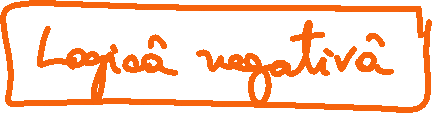 Logică negativă